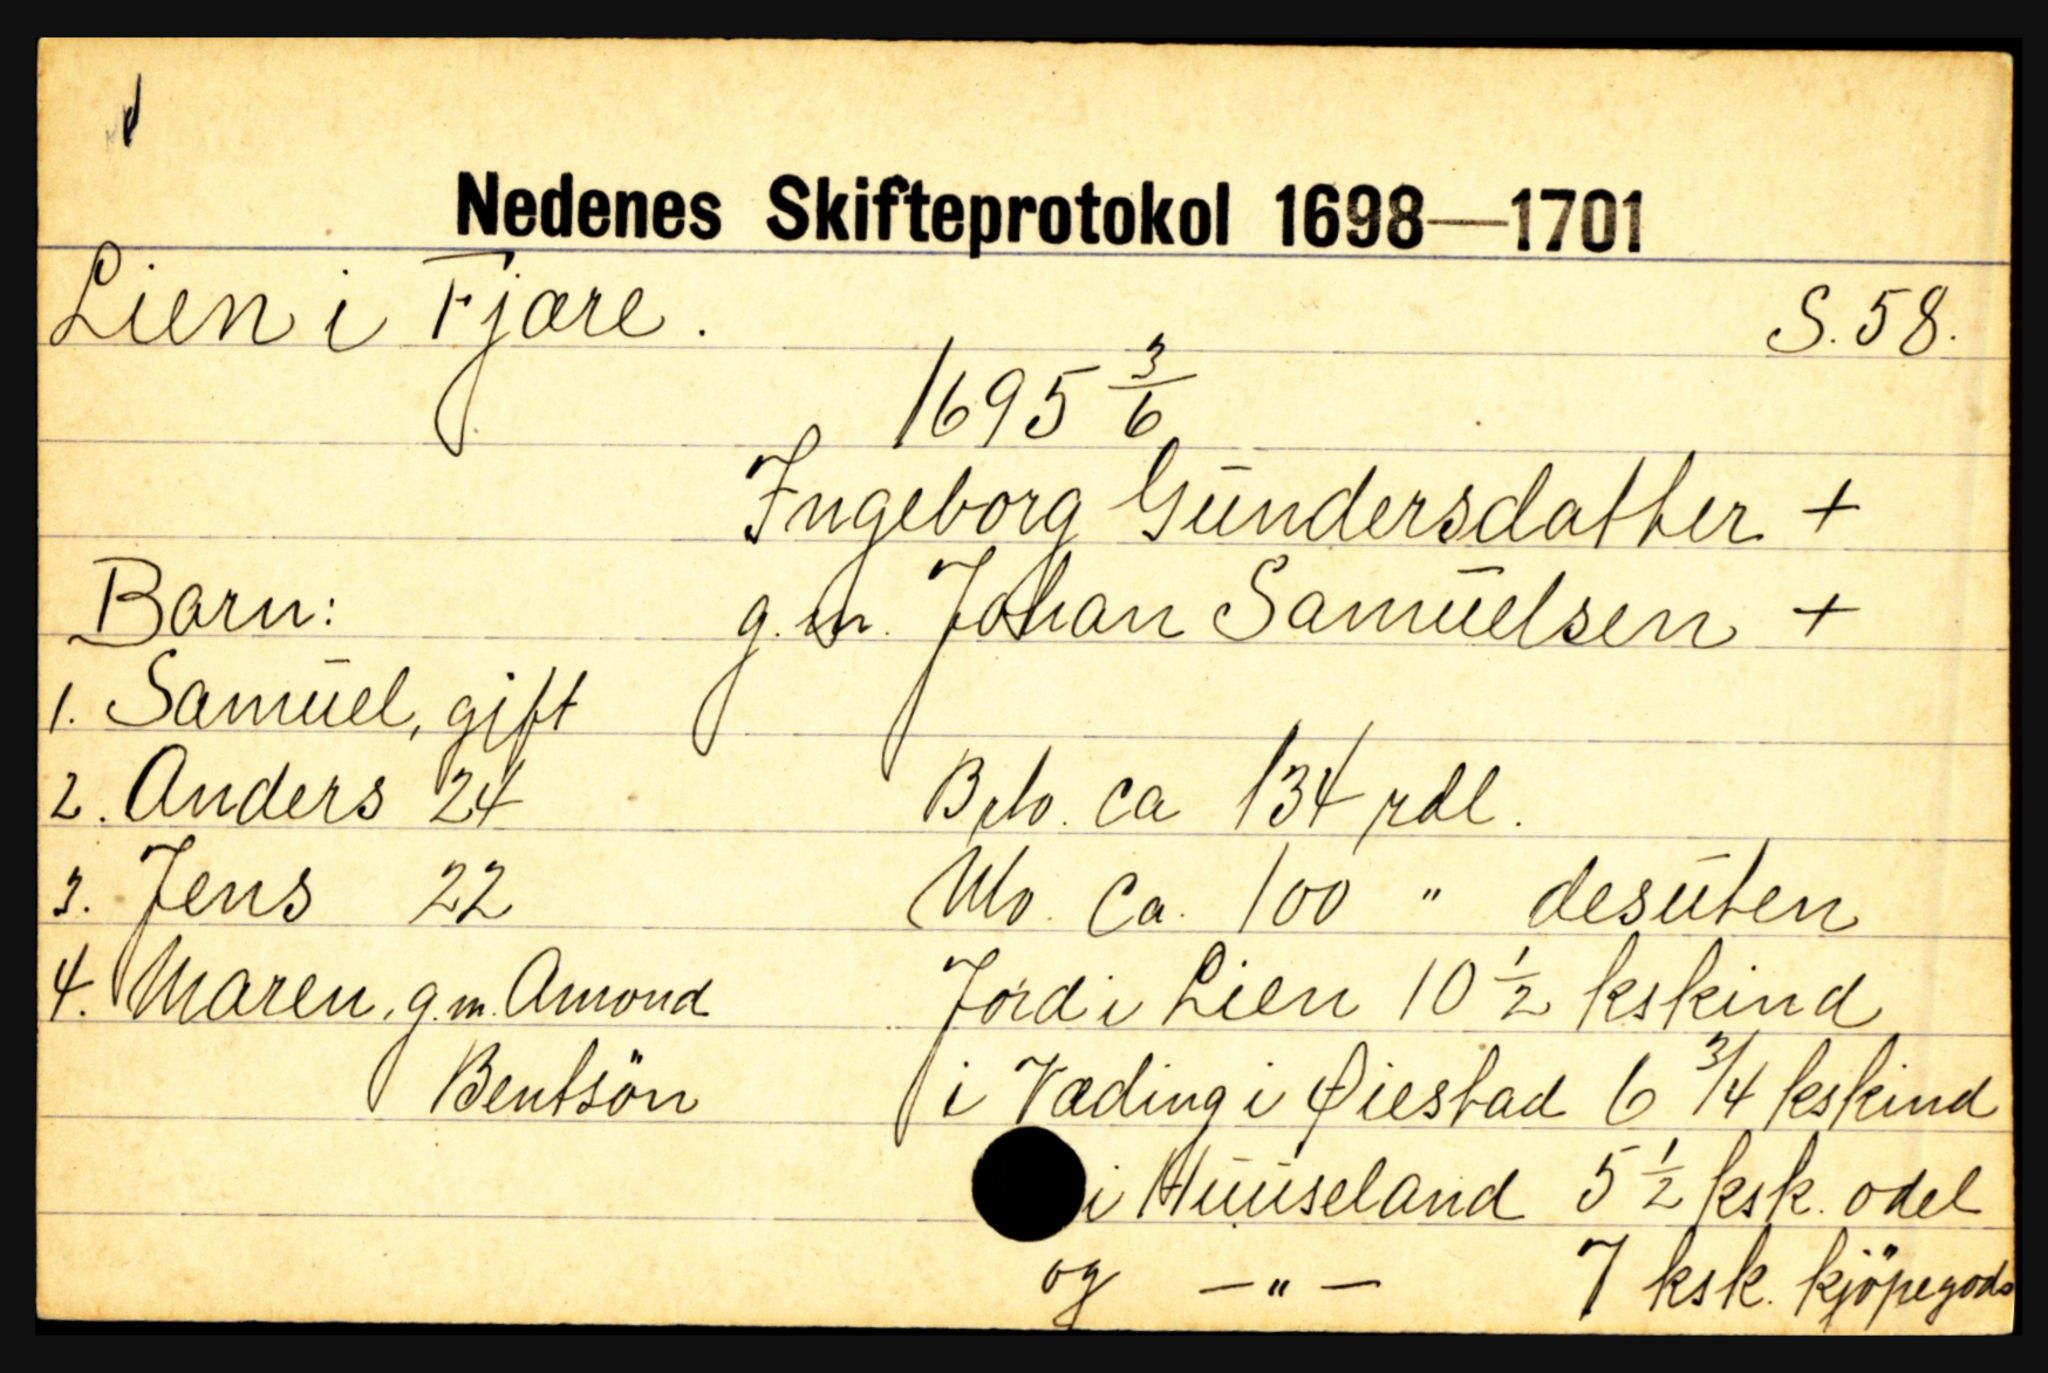 Nedenes Skifteprotokol 1698—1701
Lien i Fjære. S. 58.
1695 3/6
Ingeborg Gundersdatter +
g. m. Johan Samuelsen +
Barn:
1. Samuel, gift
2. Anders 24
3. Jens 22
4. Maren, g.m. Amond
Bentsön
Blo. ca 134 rdl.
Nlo. ca. 100 " desuten
Jord i Lien 10 1/2 kskind
i Væding i Øiestad 6 3/4 kskind
i Huuseland 5 1/2 ksk. odel
og —"— 7 ksk. kjöpegods